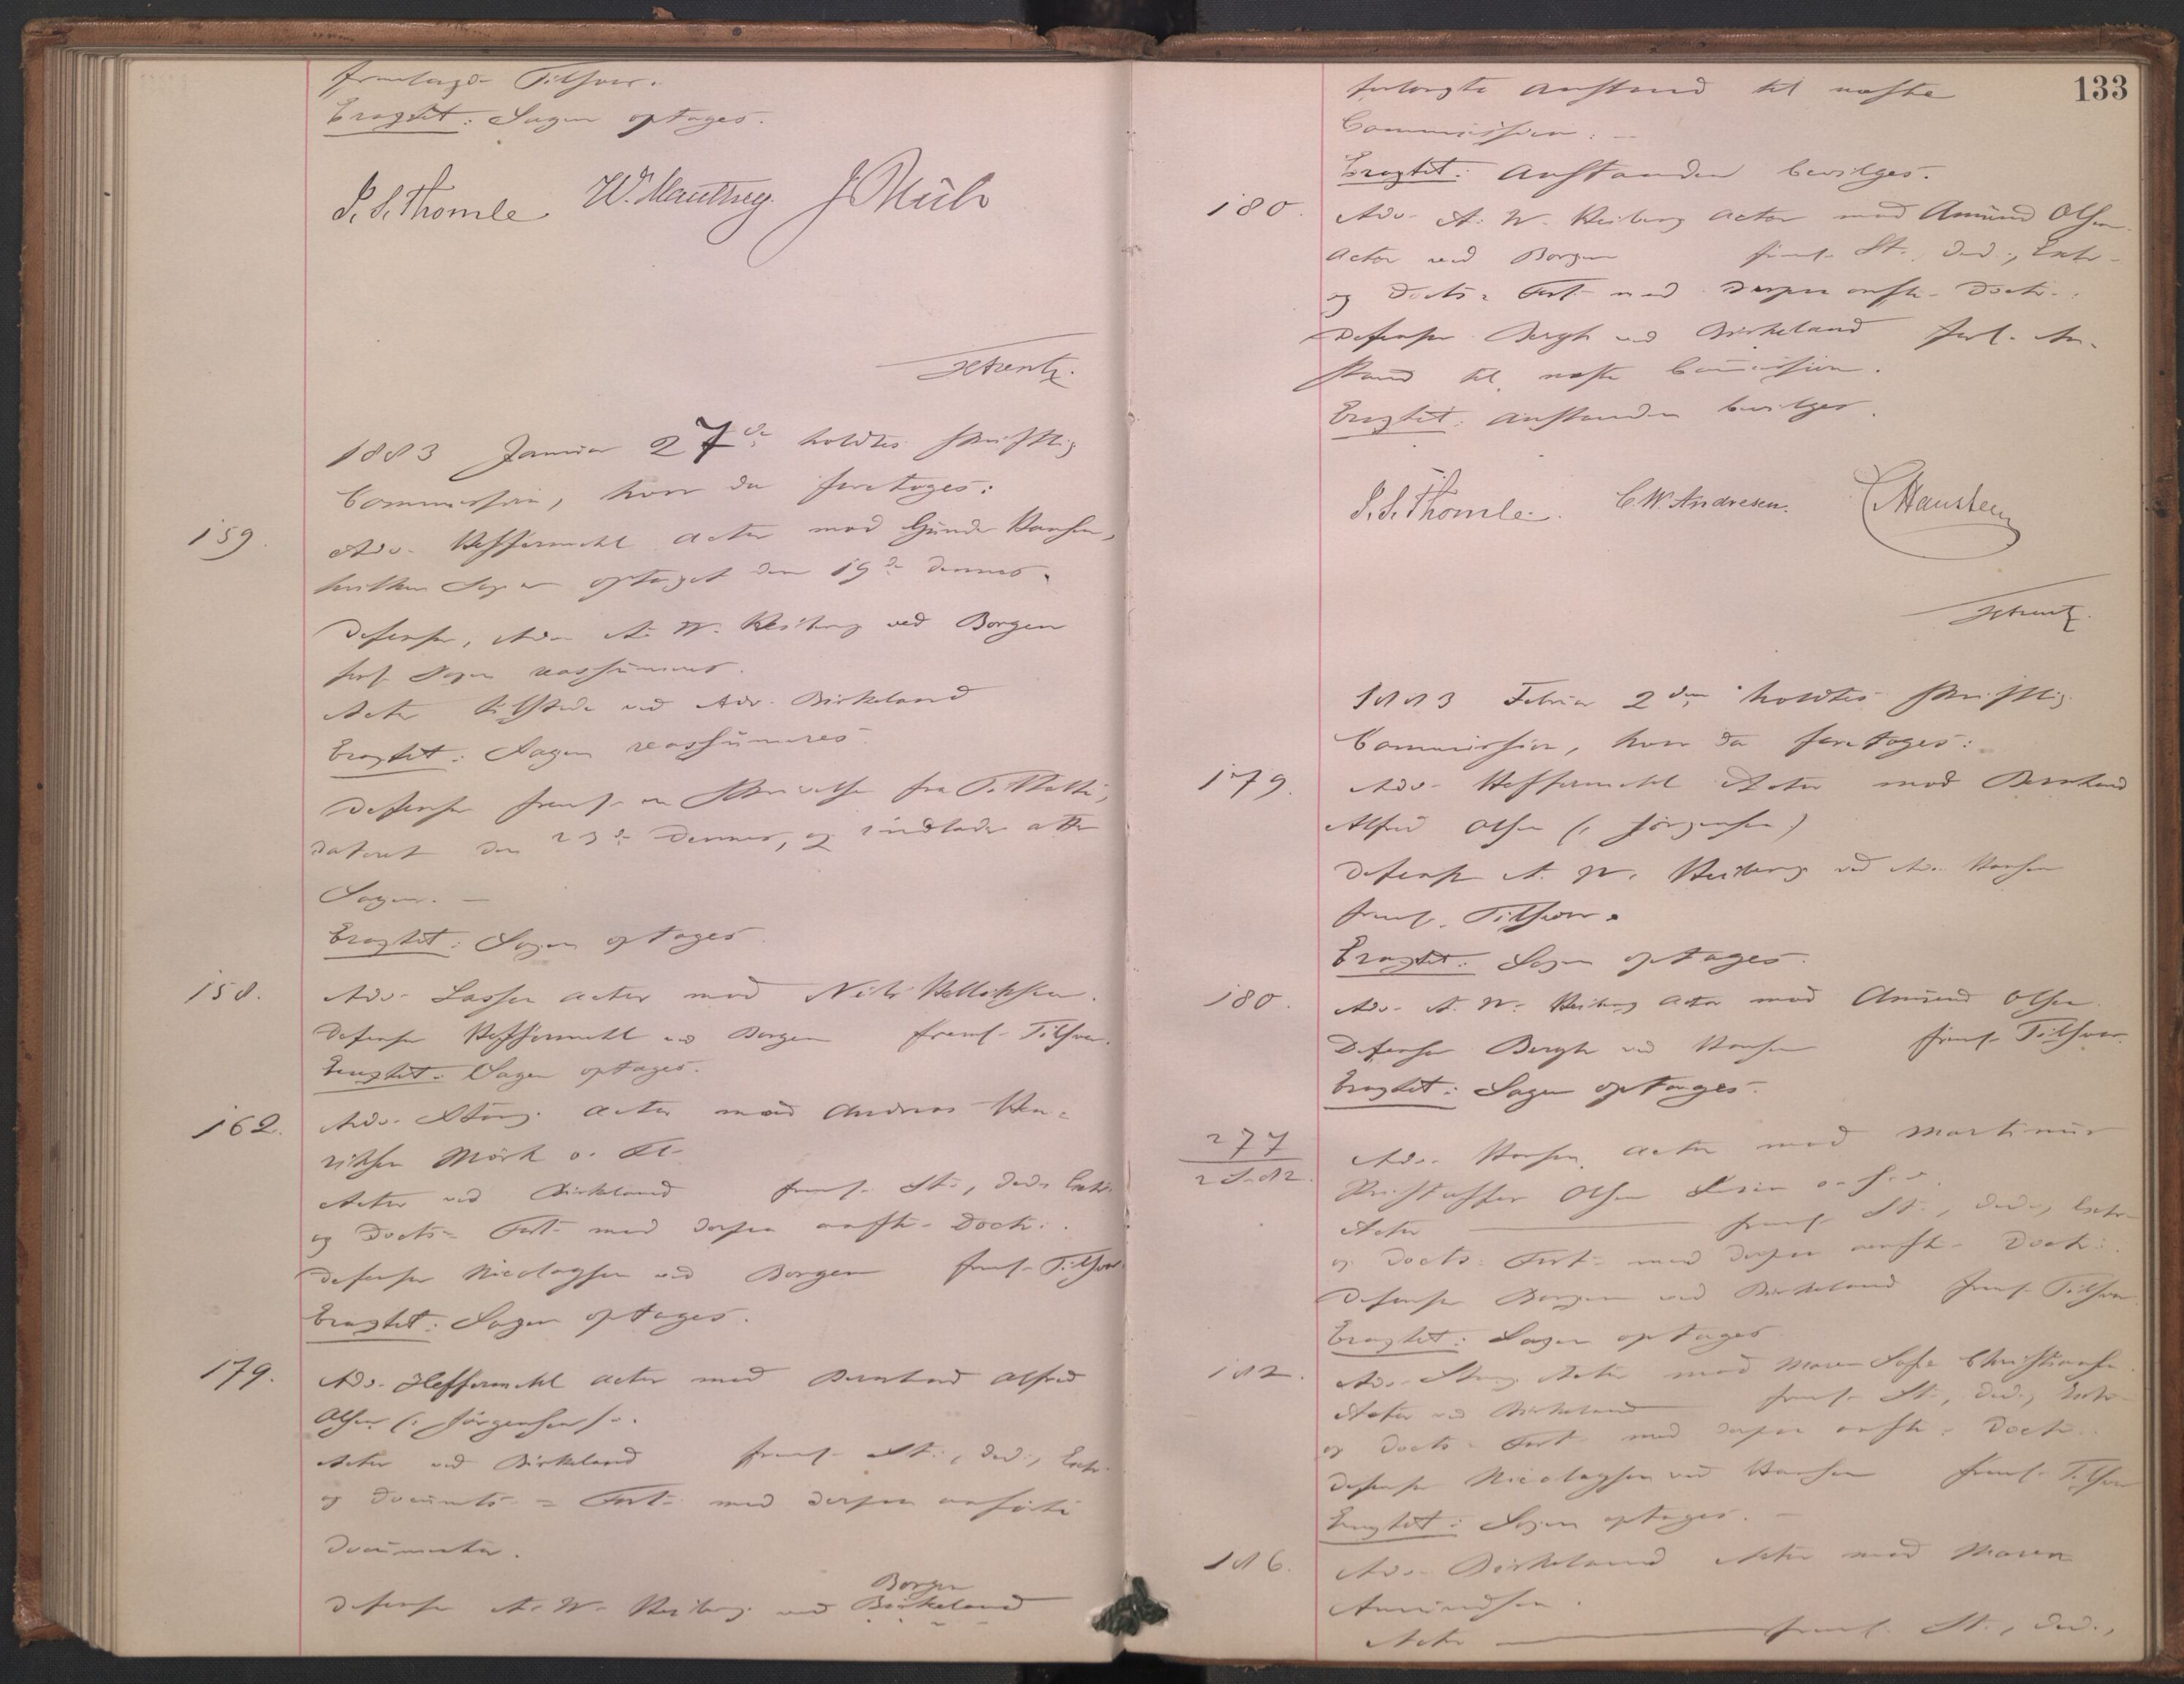 fremlagde Tilsvar.
Eragtet: Sagen optages.
S. S. Thomle W. Mautheg. J Muh
Schrentz.
1883 Januar 27de holdtes skriftlig
Commission, hvor da foretoges:
159. Adv. Heffermehl Actor mod Gunder Hansen,
hvilken Sag er optaget den 19de dennes.
Defensor, Adv. A. W. Heiberg ved Borgen
forl. Sagen reassumeret.
Actor tilstede ved Adv. Birkeland
Eragtet: Sagen reassumeres.
Defensor freml. en Skrivelse fra
dateret den 23de dennes, og indlader atter
Sagen. —
Eragtet: Sagen optages.
158. Adv. Lasson Actor mod Nils Kettilsen.
Defensor Heffermehl ved Borgen freml. Tilsvar.
Eragtet: Sagen optages.
162. Adv. Stang Actor mod Andreas Hen-
riksen Mörk o. Fl.
Actor ved Birkeland freml. St., Ded., Extr.
og Docts- Fort- med derpaa anfte- Doctr.
Defensor Nicolaysen ved Borgen freml. Tilsvar
Eragtet: Sagen optages.
179. Adv. Heffermehl Actor mod Bernhard Alfred
Olsen (: Jörgensen :).
Actor ved Birkeland freml. St., Ded., Extr.
og Documts- Fort- med derpaa anförte
Documenter.
Borgen
Defensor A. W. Heiberg ved Birkeland
133
forlangte Anstand til næste
Commission. —
Eragtet: Anstanden bevilges.
180. Adv. A. W. Heiberg Actor mod Amund Olsen.
Actor ved Borgen freml. St., Ded., Extr.
og Docts- Fort- med derpaa anfte- Doctr.
Defensor Bergh ved Birkeland forl. An-
stand til næste Commission.
Eragtet: Anstanden bevilges.
S. S. Thomle. C. W. Andresen. C Hansteen
Schrentz.
1883 Februar 2den holdtes skriftlig
Commission, hvor da foretoges:
179. Adv. Heffermehl Actor mod Bernhard
Alfred Olsen (: Jörgensen)
Defensor A. W. Heiberg ved Adv. Hansen
freml. Tilsvar.
Eragtet: Sagen optages.
180. Adv. A. W. Heiberg Actor mod Amund Olsen.
Defensor Bergh ved Hansen freml. Tilsvar.
Eragtet: Sagen optages.
277
Adv. Hansen Actor mod Martinus
Kristoffer Olsen
Actor — freml. St., Ded., Extr.
og Docts- Fort- med derpaa anfte- Doctr.
Defensor Borgen ved Birkeland freml. Tilsvar.
Eragtet: Sagen optages
182. Adv. Stang Actor mod Maren Sofie Christiansen.
Actor ved Birkeland freml. St., Ded., Extr.
og Docts- Fort- med derpaa anfte- Doctr.
Defensor Nicolaysen ved Hansen freml. Tilsvar
Eragtet: Sagen optages. —
186. Adv. Birkeland Actor mod Maren
Amundsen.
Actor — freml. St., Ded.,